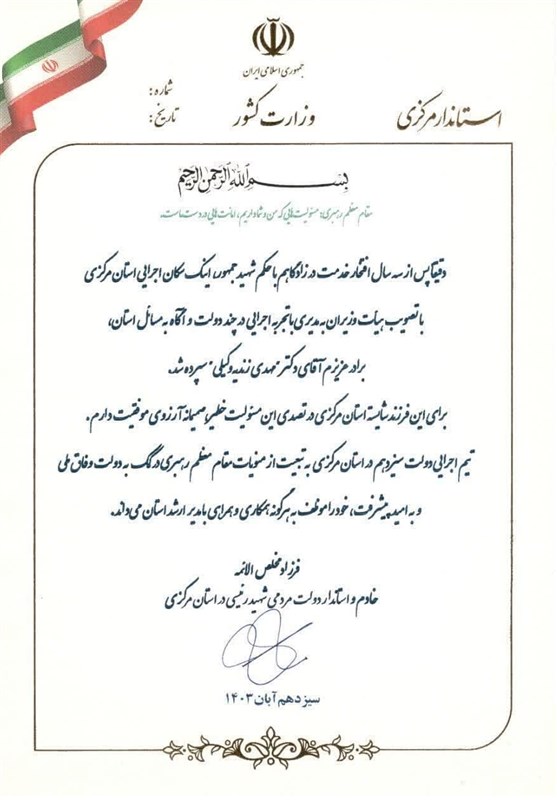 جمهوری اسلامی ایران
وزارت کشور
استاندار مرکزی
شماره:
تاریخ:
بسم الله الرحمن الرحیم
مقام معظم رهبری: مسئولیت‌هایی که من و شما داریم، امانت‌هایی در دست ماست.
دقیقا پس از سه سال افتخار خدمت در زادگاهم با حکم شهید جمهور، اینک سکان اجرایی استان مرکزی
با تصویب هیأت وزیران به مدیری با تجربه اجرایی در چند دولت و آگاه به مسائل استان،
برادر عزیزم آقای دکتر "مهدی زندیه وکیلی" سپرده شد.
برای این فرزند شایسته استان مرکزی در تصدی این مسئولیت خطیر، صمیمانه آرزوی موفقیت دارم.
تیم اجرایی دولت سیزدهم در استان مرکزی به تبعیت از منویات مقام معظم رهبری در کمک به دولت وفاق ملی
و به امید پیشرفت، خود را موظف به هرگونه همکاری و همراهی با مدیر ارشد استان می‌داند.
فرزاد مخلص الائمه
خادم و استاندار دولت مردمی شهید رئیسی در استان مرکزی
سیزدهم آبان ۱۴۰۳